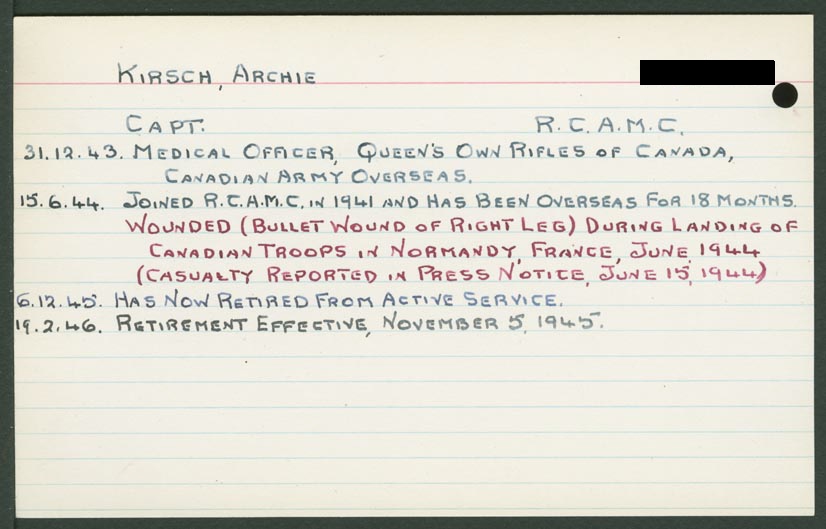 KIRSCH, ARCHIE
CAPT. R.C.A.M.C.
31.12.43. MEDICAL OFFICER, QUEEN'S OWN RIFLES OF CANADA,
CANADIAN ARMY OVERSEAS.
15.6.44. JOINED R.C.A.M.C. IN 1941 AND HAS BEEN OVERSEAS FOR 18 MONTHS.
WOUNDED (BULLET WOUND OF RIGHT LEG) DURING LANDING OF
CANADIAN TROOPS IN NORMANDY, FRANCE, JUNE 1944
(CASUALTY REPORTED IN PRESS NOTICE, JUNE 15, 1944)
6.12.45. HAS NOW RETIRED FROM ACTIVE SERVICE.
19.2.46. RETIREMENT EFFECTIVE, NOVEMBER 5, 1945.